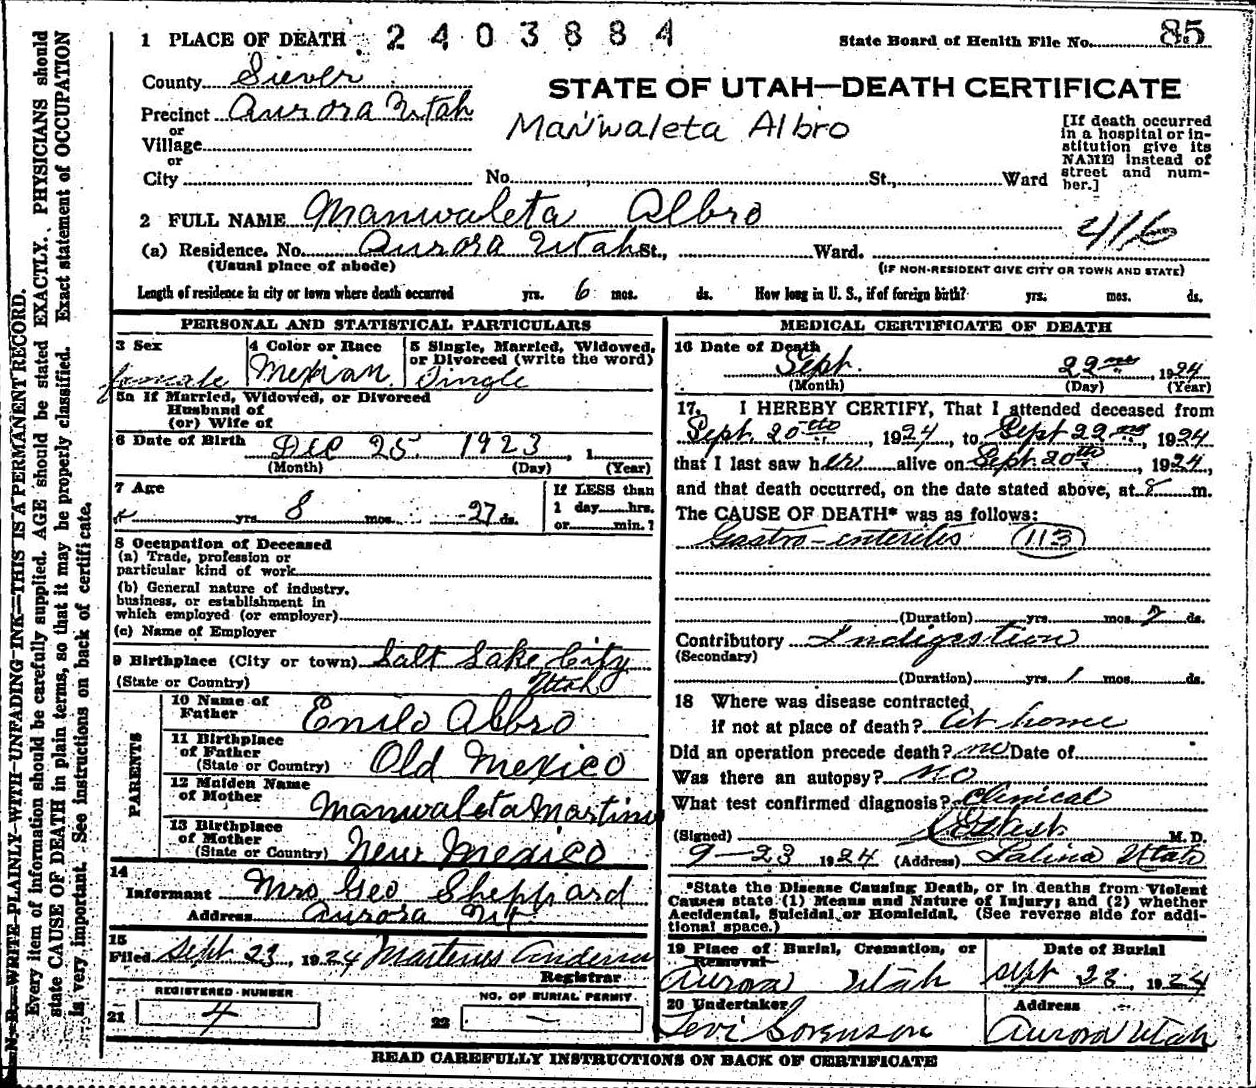 1 PLACE OF DEATH 2403884 State Board of Health File No. 85
County Siever
STATE OF UTAH—DEATH CERTIFICATE
Precinct Aurora Utah
Manwaleta Albro
or
Village
or
City No. , St., Ward
[If death occurred
in a hospital or in-
stitution give its
NAME instead of
street and num-
ber.]
2 FULL NAME Manwaleta Albro
416
(a) Residence. No. Aurora Utah St., Ward.
(Usual place of abode) (IF NON-RESIDENT GIVE CITY OR TOWN AND STATE)
Length of residence in city or town where death occurred yrs. 6 mos. ds. How long in U. S., if of foreign birth? yrs. mos. ds.
PERSONAL AND STATISTICAL PARTICULARS
3 Sex
female
4 Color or Race
Mexian
5 Single, Married, Widowed,
or Divorced (write the word)
Single
5a If Married, Widowed, or Divorced
Husband of
(or) Wife of
6 Date of Birth Dec 25 1923, 1
(Month) (Day) (Year)
7 Age
yrs 8 mos. 27 ds.
If LESS than
1 day hrs.
or min.?
8 Occupation of Deceased
(a) Trade, profession or
particular kind of work
(b) General nature of industry,
business, or establishment in
which employed (or employer)
(c) Name of Employer
9 Birthplace (City or town) Salt Lake City
(State or Country) Utah
PARENTS
10 Name of
Father Enilo Albro
11 Birthplace
of Father
(State or Country) Old Mexico
12 Maiden Name
of Mother Manwaleta Martine
13 Birthplace
of Mother
(State or Country) New Mexico
14
Informant Mrs Geo Sheppard
Address Aurora Ut
15
Filed Sept 23, 1924 Martenus Anderson
Registrar
REGISTERED NUMBER
21 4
NO. OF BURIAL PERMIT
22 —
MEDICAL CERTIFICATE OF DEATH
16 Date of Death
Sept. 22nd 1924
(Month) (Day) (Year)
17. I HEREBY CERTIFY, That I attended deceased from
Sept. 20th, 1924, to Sept 22nd, 1924
that I last saw her alive on Sept. 20th, 1924,
and that death occurred, on the date stated above, at 8 m.
The CAUSE OF DEATH* was as follows:
Gastro-enterites (113)
(Duration) yrs. mos. 2 ds.
Contributory Indigestion
(Secondary)
(Duration) yrs. 1 mos. ds.
18 Where was disease contracted
if not at place of death? At home
Did an operation precede death? no Date of
Was there an autopsy? no
What test confirmed diagnosis? Clinical
(Signed) West M. D.
9-23 1924 (Address) Salina Utah
*State the Disease Causing Death, or in deaths from Violent
Causes state (1) Means and Nature of Injury; and (2) whether
Accidental, Suicidal or Homicidal. (See reverse side for addi-
tional space.)
19 Place of Burial, Cremation, or
Removal
Aurora Utah
Date of Burial
Sept 23, 1924
20 Undertaker
Levi Sorenson
Address
Aurora Utah
READ CAREFULLY INSTRUCTIONS ON BACK OF CERTIFICATE
N. B.—WRITE PLAINLY WITH UNFADING INK—THIS IS A PERMANENT RECORD.
Every item of information should be carefully supplied. AGE should be stated EXACTLY. PHYSICIANS should
state CAUSE OF DEATH in plain terms, so that it may be properly classified. Exact statement of OCCUPATION
is very important. See instructions on back of certificate.